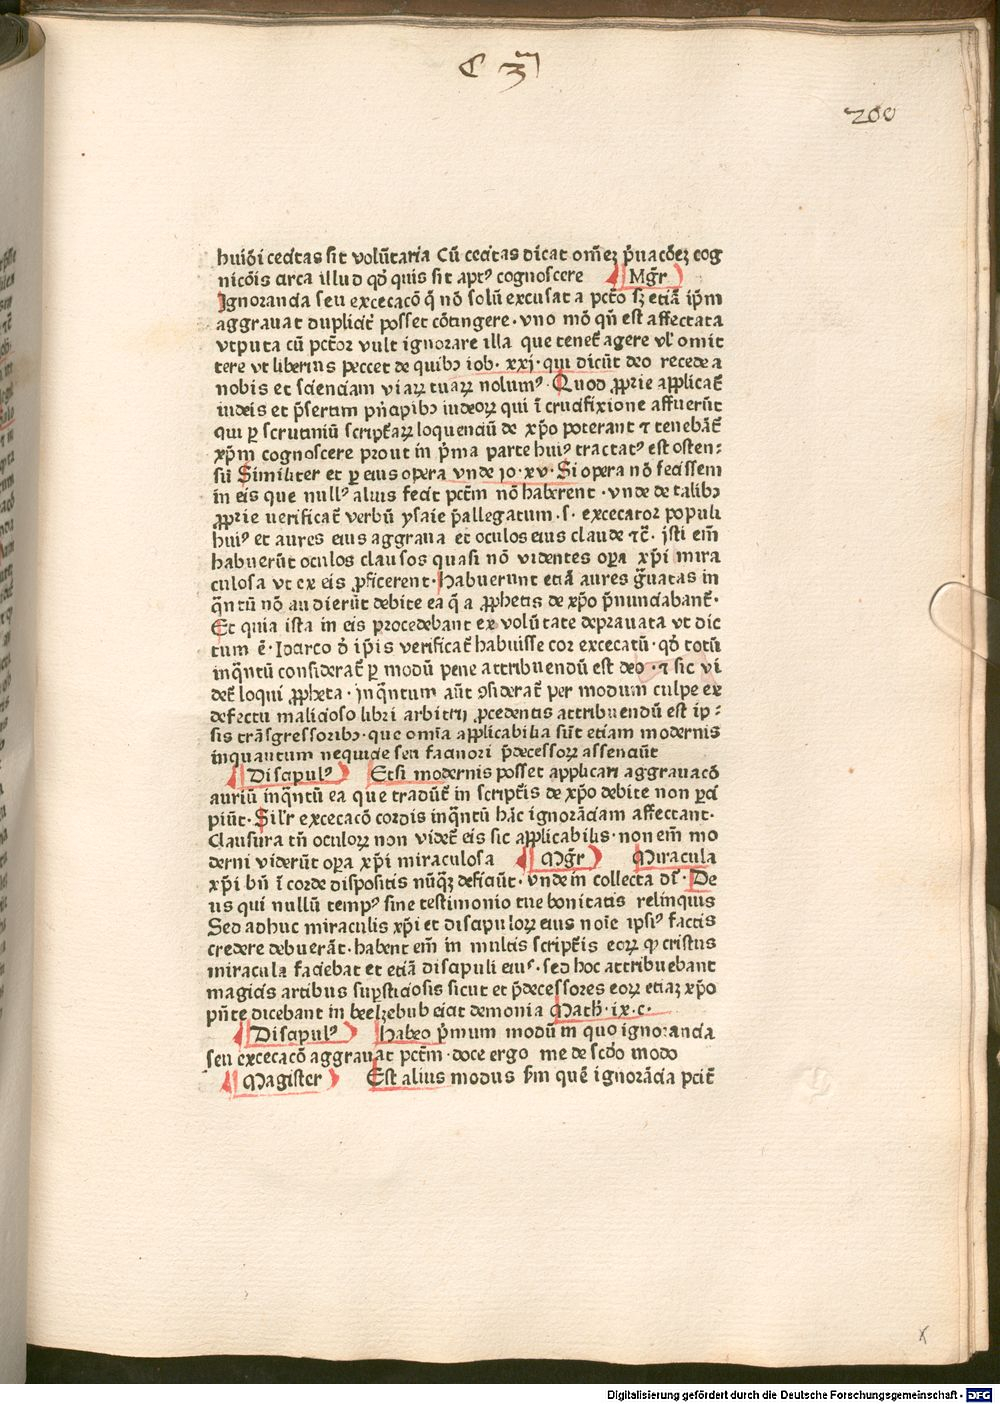 C 3m
200
huiōi cecitas sit volūtaria Cū cecitas dicat om̄eʒ p̄uacōeʒ cog
nicōis circa illud qđ quis sit aptꝰ cognoscere Mḡr
Ignorancia seu excecacō q̄ nō solū excusat a pctō sʒ etiā ip̄m
aggrauat duplicit̄ posset cōtingere · vno mō qn̄ est affectata
vtputa cū pctōr vult ignorare illa que tenet̄ agere vl' omit
tere vt liberius peccet de quibꝫ iob · xxj · qui dicūt deo recede a
nobis et scienciam viaꝝ tuaꝝ nolumꝰ · Quod ꝓprie applicat̄
iudeis et p̄sertim pn̄cipibꝫ iudeoꝝ qui ī crucifixione affuerūt
qui ꝑ scrutiniū script̄aꝝ loquenciū de xp̄o poterant ⁊ tenebāt̄
xp̄m cognoscere prout in p̄ma parte huiꝰ tractatꝰ est osten⸗
sū Similiter et ꝑ eius opera vnde jo · xv · Si opera nō fecissem
in eis que nullꝰ alius fecit pctm̄ nō haberent · vnde de talibꝫ
ꝓprie uerificat̄ verbū ysaie p̄allegatum · s · excecator populi
huiꝰ et aures eius aggraua et oculos eius claude ⁊c̄ · jsti em̄
habuerūt oculos clausos quasi nō videntes oꝑa xp̄i mira
culosa vt ex eis ꝓficerent · habuerunt etiā aures g̃uatas in
q̃ntū nō audierūt debite ea q̄ a ꝓphetis de xp̄o p̄nunciabant̄ ·
Et quia ista in eis procedebant ex volūtate deprauata vt dic
tum ē · Idarco đ ip̄is verificat̄ habuisse cor excecatū · qđ totū
inq̃ntū considerat̄ ꝑ modū pene attribuendū est deo · ⁊ sic vi
det̄ loqui ꝓpheta · jn q̃ntum aūt ꝯsiderat̄ per modum culpe ex
defectu malicioso libri arbitrij ꝓcedentis attribuendū est ip⸗
sis trāsgressoribꝫ · que omīa applicabilia sūt etiam modernis
inquantum nequicie seu facinori p̄decessoꝝ assenciūt
Discipulꝰ Etsi modernis posset applicari aggrauacō
auriū inq̃ntū ea que tradūt̄ in script̄is de xp̄o debite non ꝑci
piūt · Sil'r excecacō cordis inq̃ntū hāc ignorāciam affectant ·
Clausura tn̄ oculoꝝ non videt̄ eis sic applicabilis · non em̄ mo
derni viderūt oꝑa xp̄i miraculosa Mḡr Miracula
xp̄i bn̄ ī corde dispositis nūq̃ʒ deficiūt · vnde in collecta dr̄ · De
us qui nullū tempꝰ sine testimonio tue bonitatis relinquis
Sed adhuc miraculis xp̄i et discipuloꝝ eius noīe ipsiꝰ factis
credere debuerāt · habent em̄ in multis script̄is eoꝝ ꝙ cristus
miracula faciebat et etiā discipuli eiuꝰ · sed hoc attribuebant
magicis artibus suꝑsticiosis sicut et p̄decessores eoꝝ etiaʒ xp̄o
pn̄te dicebant in beelzebub eicit demonia Math̄ · ix · c ·
Discipulꝰ habeo p̄mum modū in quo ignorancia
seu excecacō aggrauat pctm̄ · doce ergo me de scđo modo
Magister Est alius modus s̄m quē ignorācia pcit̄
x
Digitalisierung gefördert durch die Deutsche Forschungsgemeinschaft · DFG